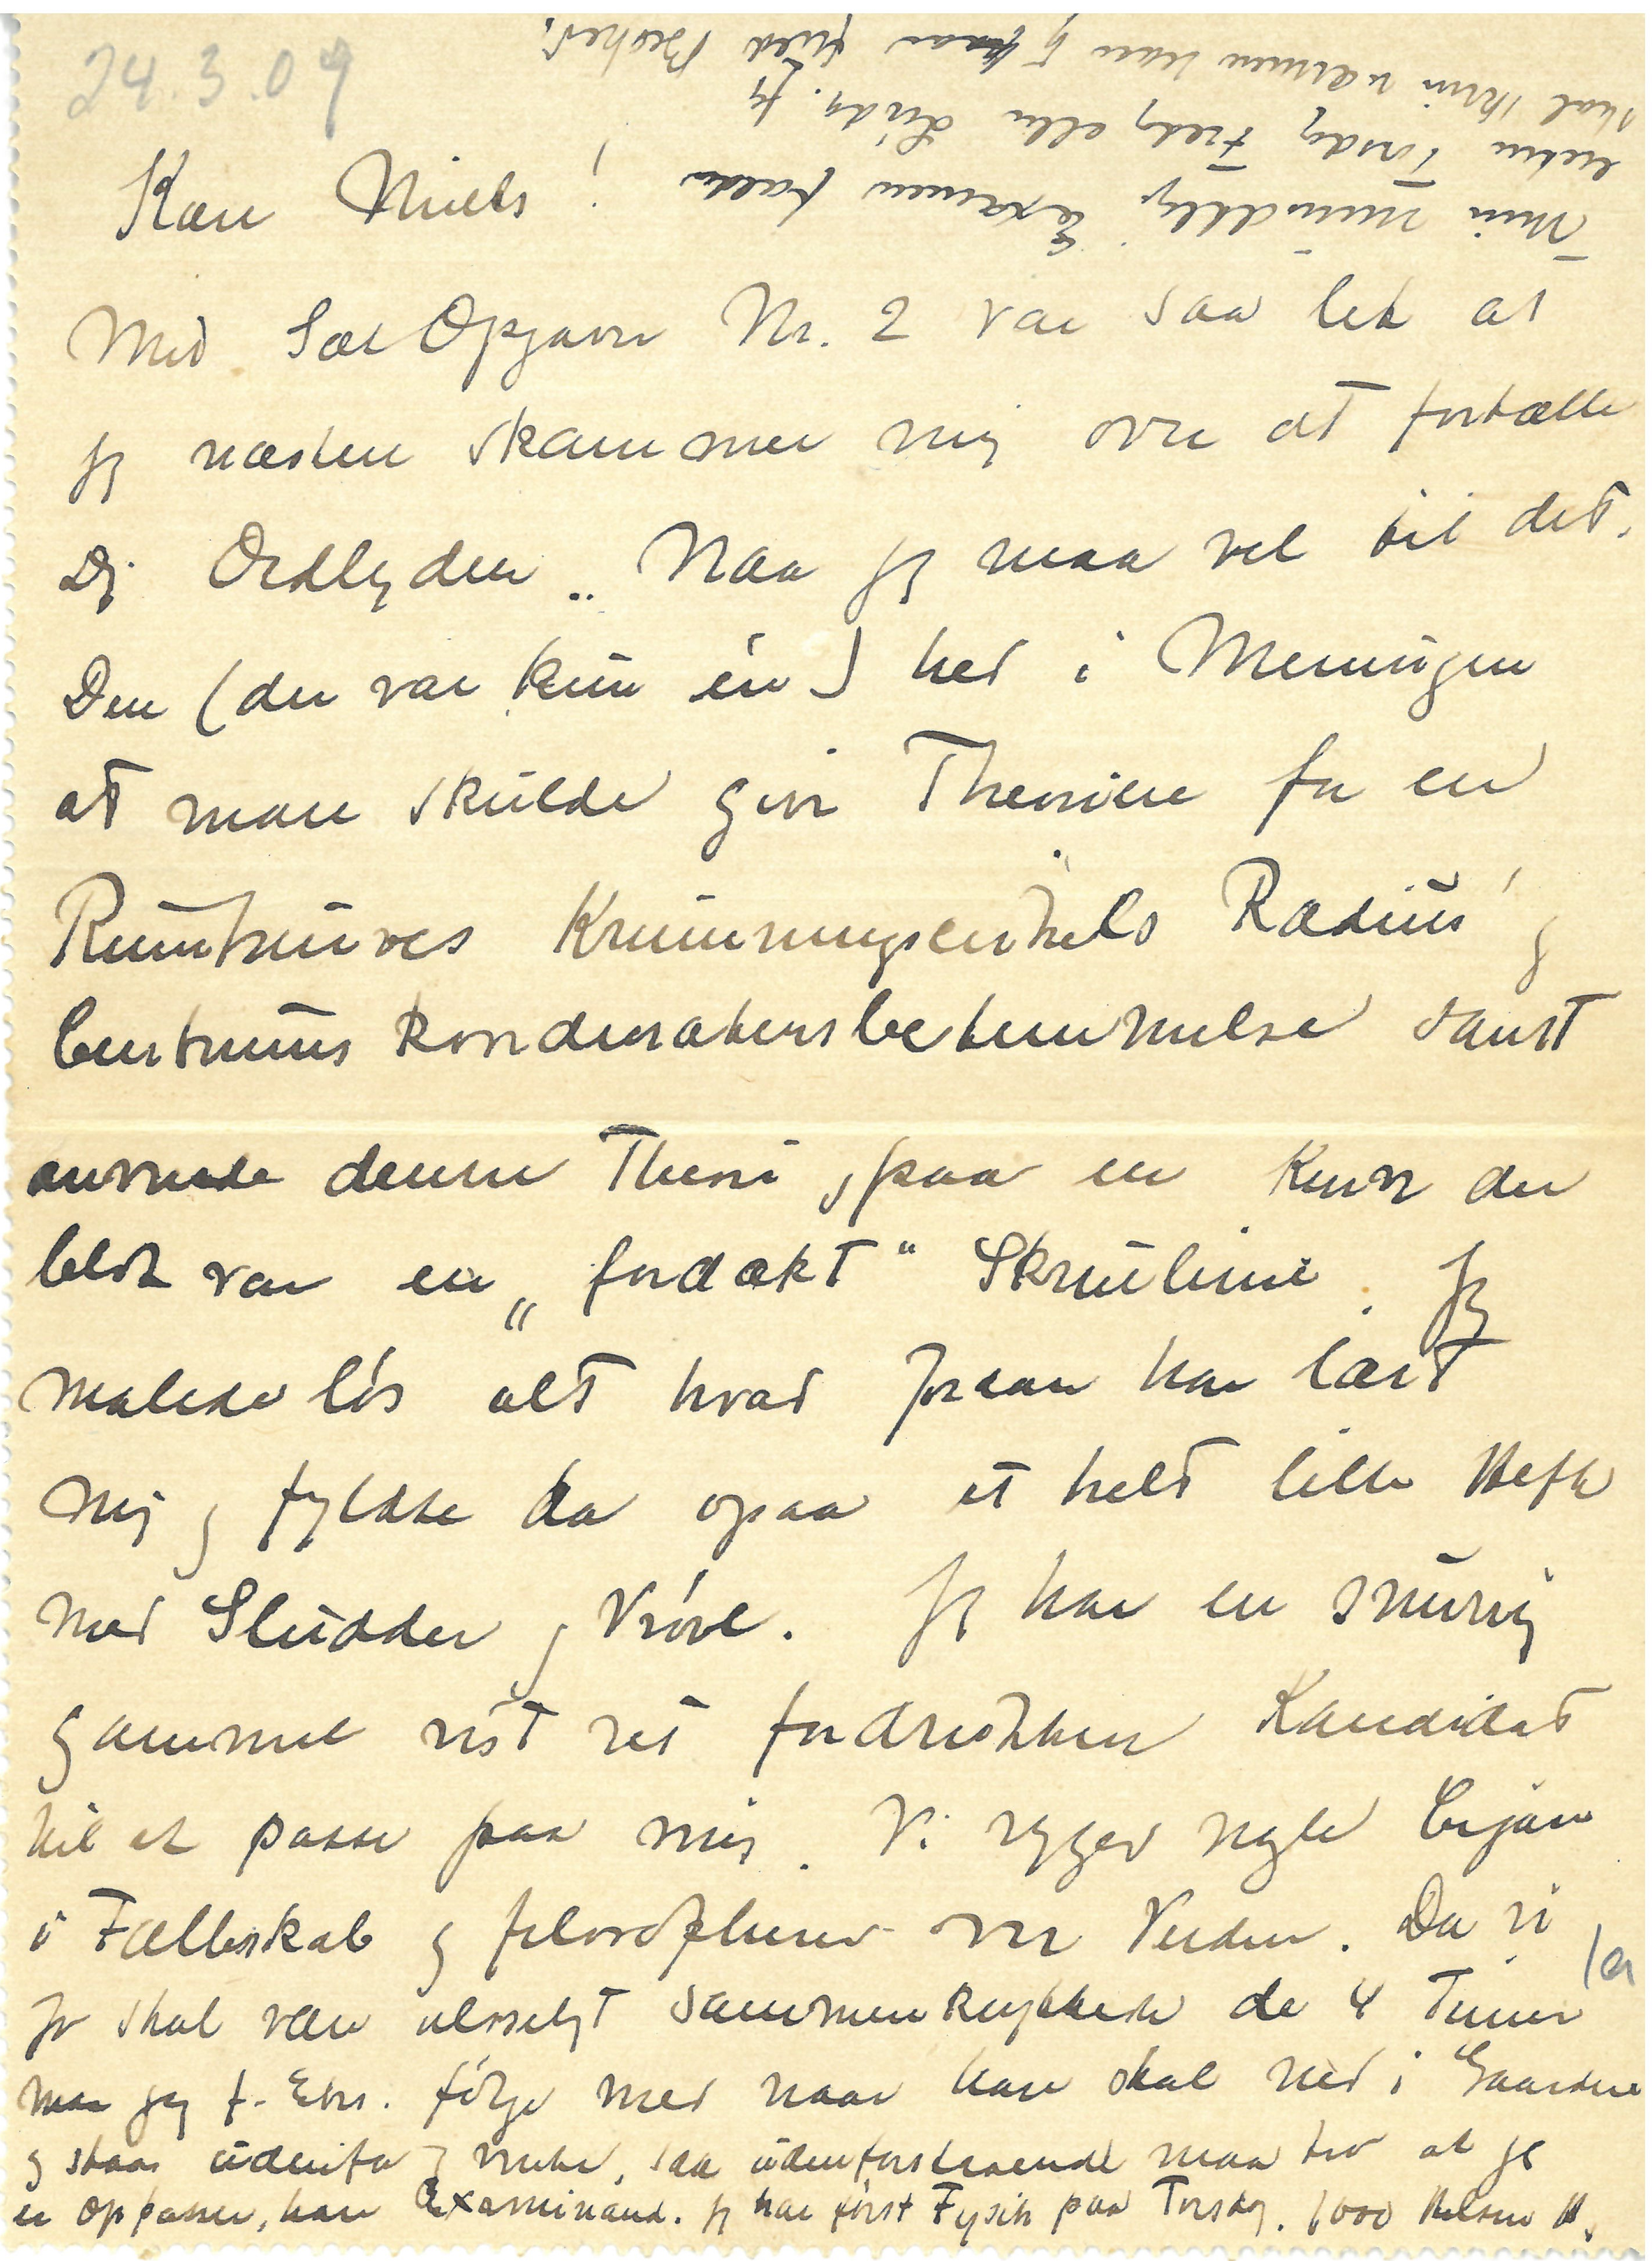 24.3.09
Kære Niels!
Med Sær Opgave Nr. 2 var saa let at
jeg næsten skammer mig over at fortælle
Dig Ordlyden. Naa jeg maa vel til det.
Den (der var kun én) hed i Meningen
at man skulde give Theorien for en
Rumkurves Krumningscirkels Radius' og
Centrums Koordinatersbestemmelse samt
anvende denne Theori paa en Kurve der
blot var en „fordækt" Skruelinie. Jeg
malede løs alt hvad Johan har lært
mig og fyldte da ogsaa et helt lille Hefte
med Sludder og Vrøvl. Jeg har en snurrig
gammel vist ret fordrukken Kandidat
til at passe paa mig. Vi ryger nogle Cigarer
i Fællesskab og filosopherer over Verden. Da vi
jo skal være uløseligt sammenknyttede de 4 Timer
maa jeg f. Eks. følge med naar han skal ned i Gaarden
og staar udenfor og venter, saa udenforstaaende maa tro at jeg
er Oppasser, han Examinand. Jeg har først Fysik paa Torsdag. 1000 Hilsner H.
Min mundtlig Examen falder
enten Torsdag Fredag eller Lørdag. Jeg
skal skrive nærmere naar jeg faar fuld Besked.